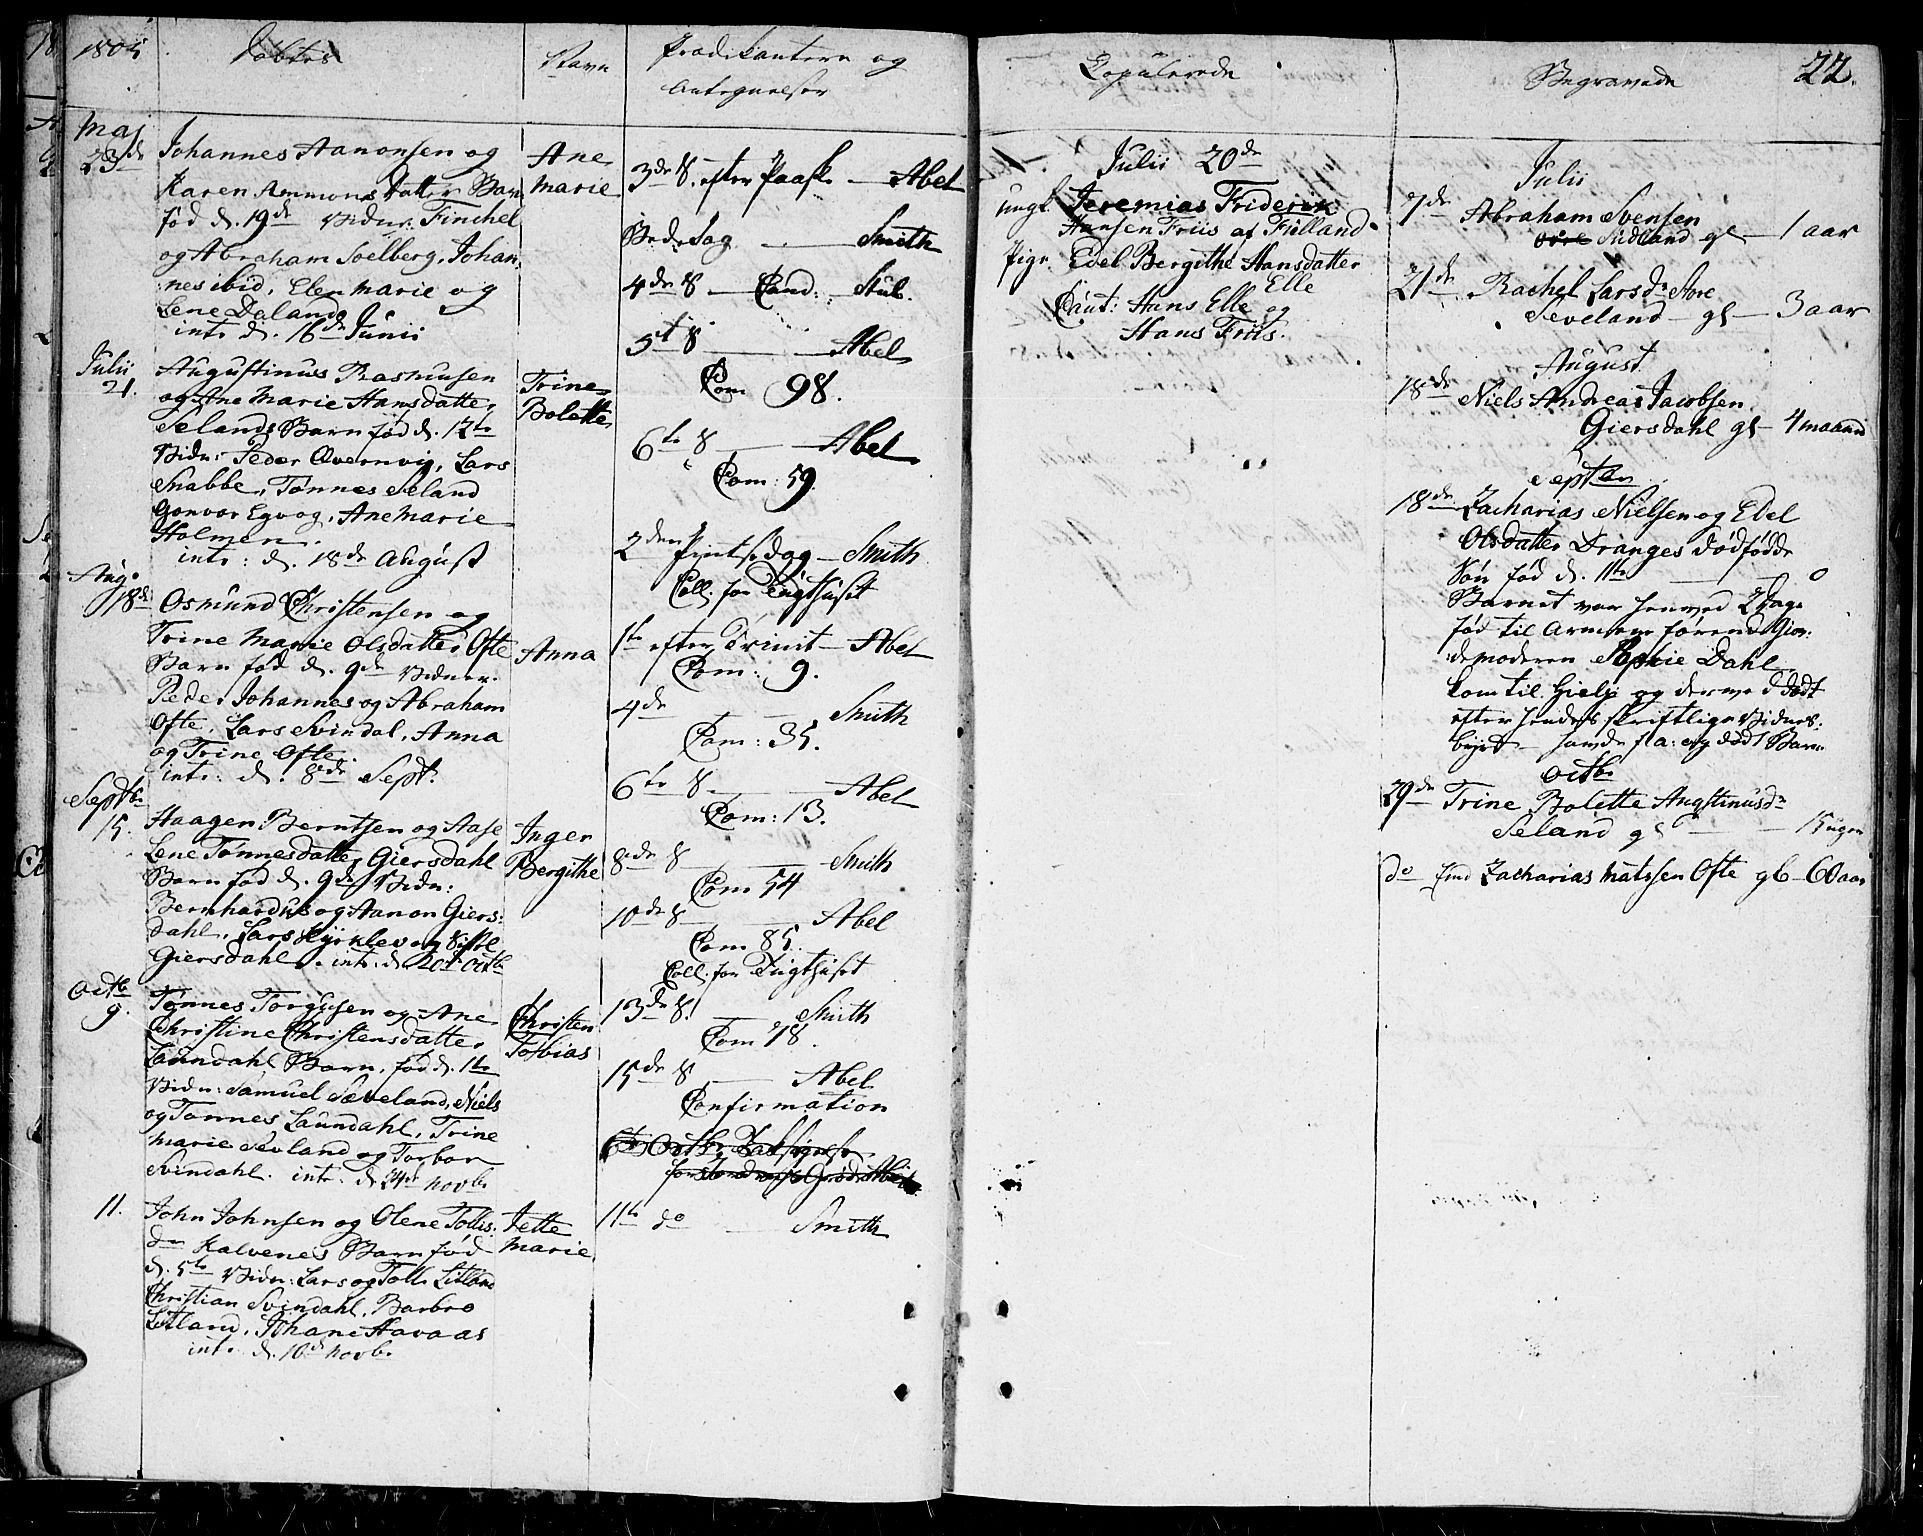 1805
Døbte
Navn
Prædikantere og
Antegnelser
Copulerede
Begravede
22.
Maj
23de
Johannes Aanonsen og
Karen Ammons datter Barn
fød d. 19de Vidner: Finchel
og Abraham Soelberg, Johan,
nes ibid, Elen Marie og
Lene Deland,
intr. d. 16de Junii
Ane
Marie
Julii
21.
Augustinus Rasmusen
og Ane Marie Hansdatter
Selands Barn fød d. 12te
Vidn: Peder Qvernvig, Lars
Snabbe, Tønnes Seland
Gonvor Egvog, Ane Marie
Holmen.
intr: d. 18de August
Trine
Bolette
Aug.
18de
Osmund Christensen og
Trine Marie Olsdatter Ofte
Barn fød d. 9de Vidner.
Peder Johannes og Abraham
Ofte, Lars Svindal, Anna
og Trine Ofte.
intr: d. 8de Sept.
Anna
Septb.
15.
Haagen Berntsen og Aase
Lene Tønnesdatter Giersdahl
Barn fød d. 9de Vidn:
Bernhardus og Aanon Giers:
dahl, Lars og
Giersdahl. intr: d. 20de Octb.
Inger
Bergithe
Octb.
9.
Tønnes Torgusen og Ane
Christine Christensdatter
Laundahl Barn, fød d. 1te
Vidn: Samuel Sæveland, Niels
og Tønnes Laundahl, Trine
Marie Sevland og Torbor
Svindahl. intr. d. 24de Novb.
Christen
Tobias
11.
John Johnsen og Olene Tollis:
dr Kalvenes Barn fød
d. 5te Vidn: Lars og Tolli Litland
Christian Svindahl, Barbro
Litland, Johane Havaas
intr. d. 10de Novb.
Jette
Marie
3de S. efter Paaske — Abel
Bededag — Smith
4de S — Cand: Stub.
5te S — Abel
Com 98.
6te S — Abel
Com: 59.
2den Pintsedag — Smith
Coll. for Tugthuset
1te efter Trinit — Abel
Com: 9.
4de — Smith
Com: 35.
6te S — Abel
Com: 13.
8de S — Smith
Com 54
10de S — Abel
Com 85.
Coll. for Tugthuset
13de S. — Smith
Com 78.
15de S — Abel
Confirmation
6te Octbr. Taksigelse
11te do — Smith
Julii 20de
ungk. Jeremias Friderik
Hansen Friis af Fulland
Pige. Edel Bergithe Hansdatter
Elle
Caut: Hans Elle og
Hans Friis.
Julii
7de Abraham Svensen
øvre Sudland gl — 1 aar
21de Rachel Larsdr Store
Seveland — gl — 3 aar
August
18de Niels Andreas Jacobsen
Giersdahl gl — 4 maaned
Septbr
18de Zacharias Nielsen og Edel
Olsdatter Dranges dødfødde
Søn fød d. 11te — 0
Barnet var henved 2 Dage
fød til Armene førend Gior:
demoderen Sophie Dahl
kom til Hielp og derved død
efter hendes skriftlige Vidnes:
byrd —
Octb.
29de Trine Bolette Augstinusdr
Seland gl — 15 uger
do Zacharias Matssen Ofte gl — 60 aar